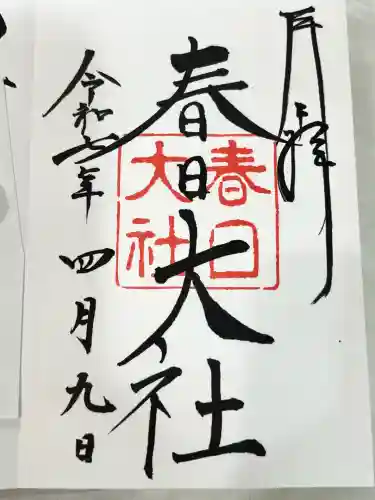 奉拝
春日大社
春日
大社
令和七年
四月九日